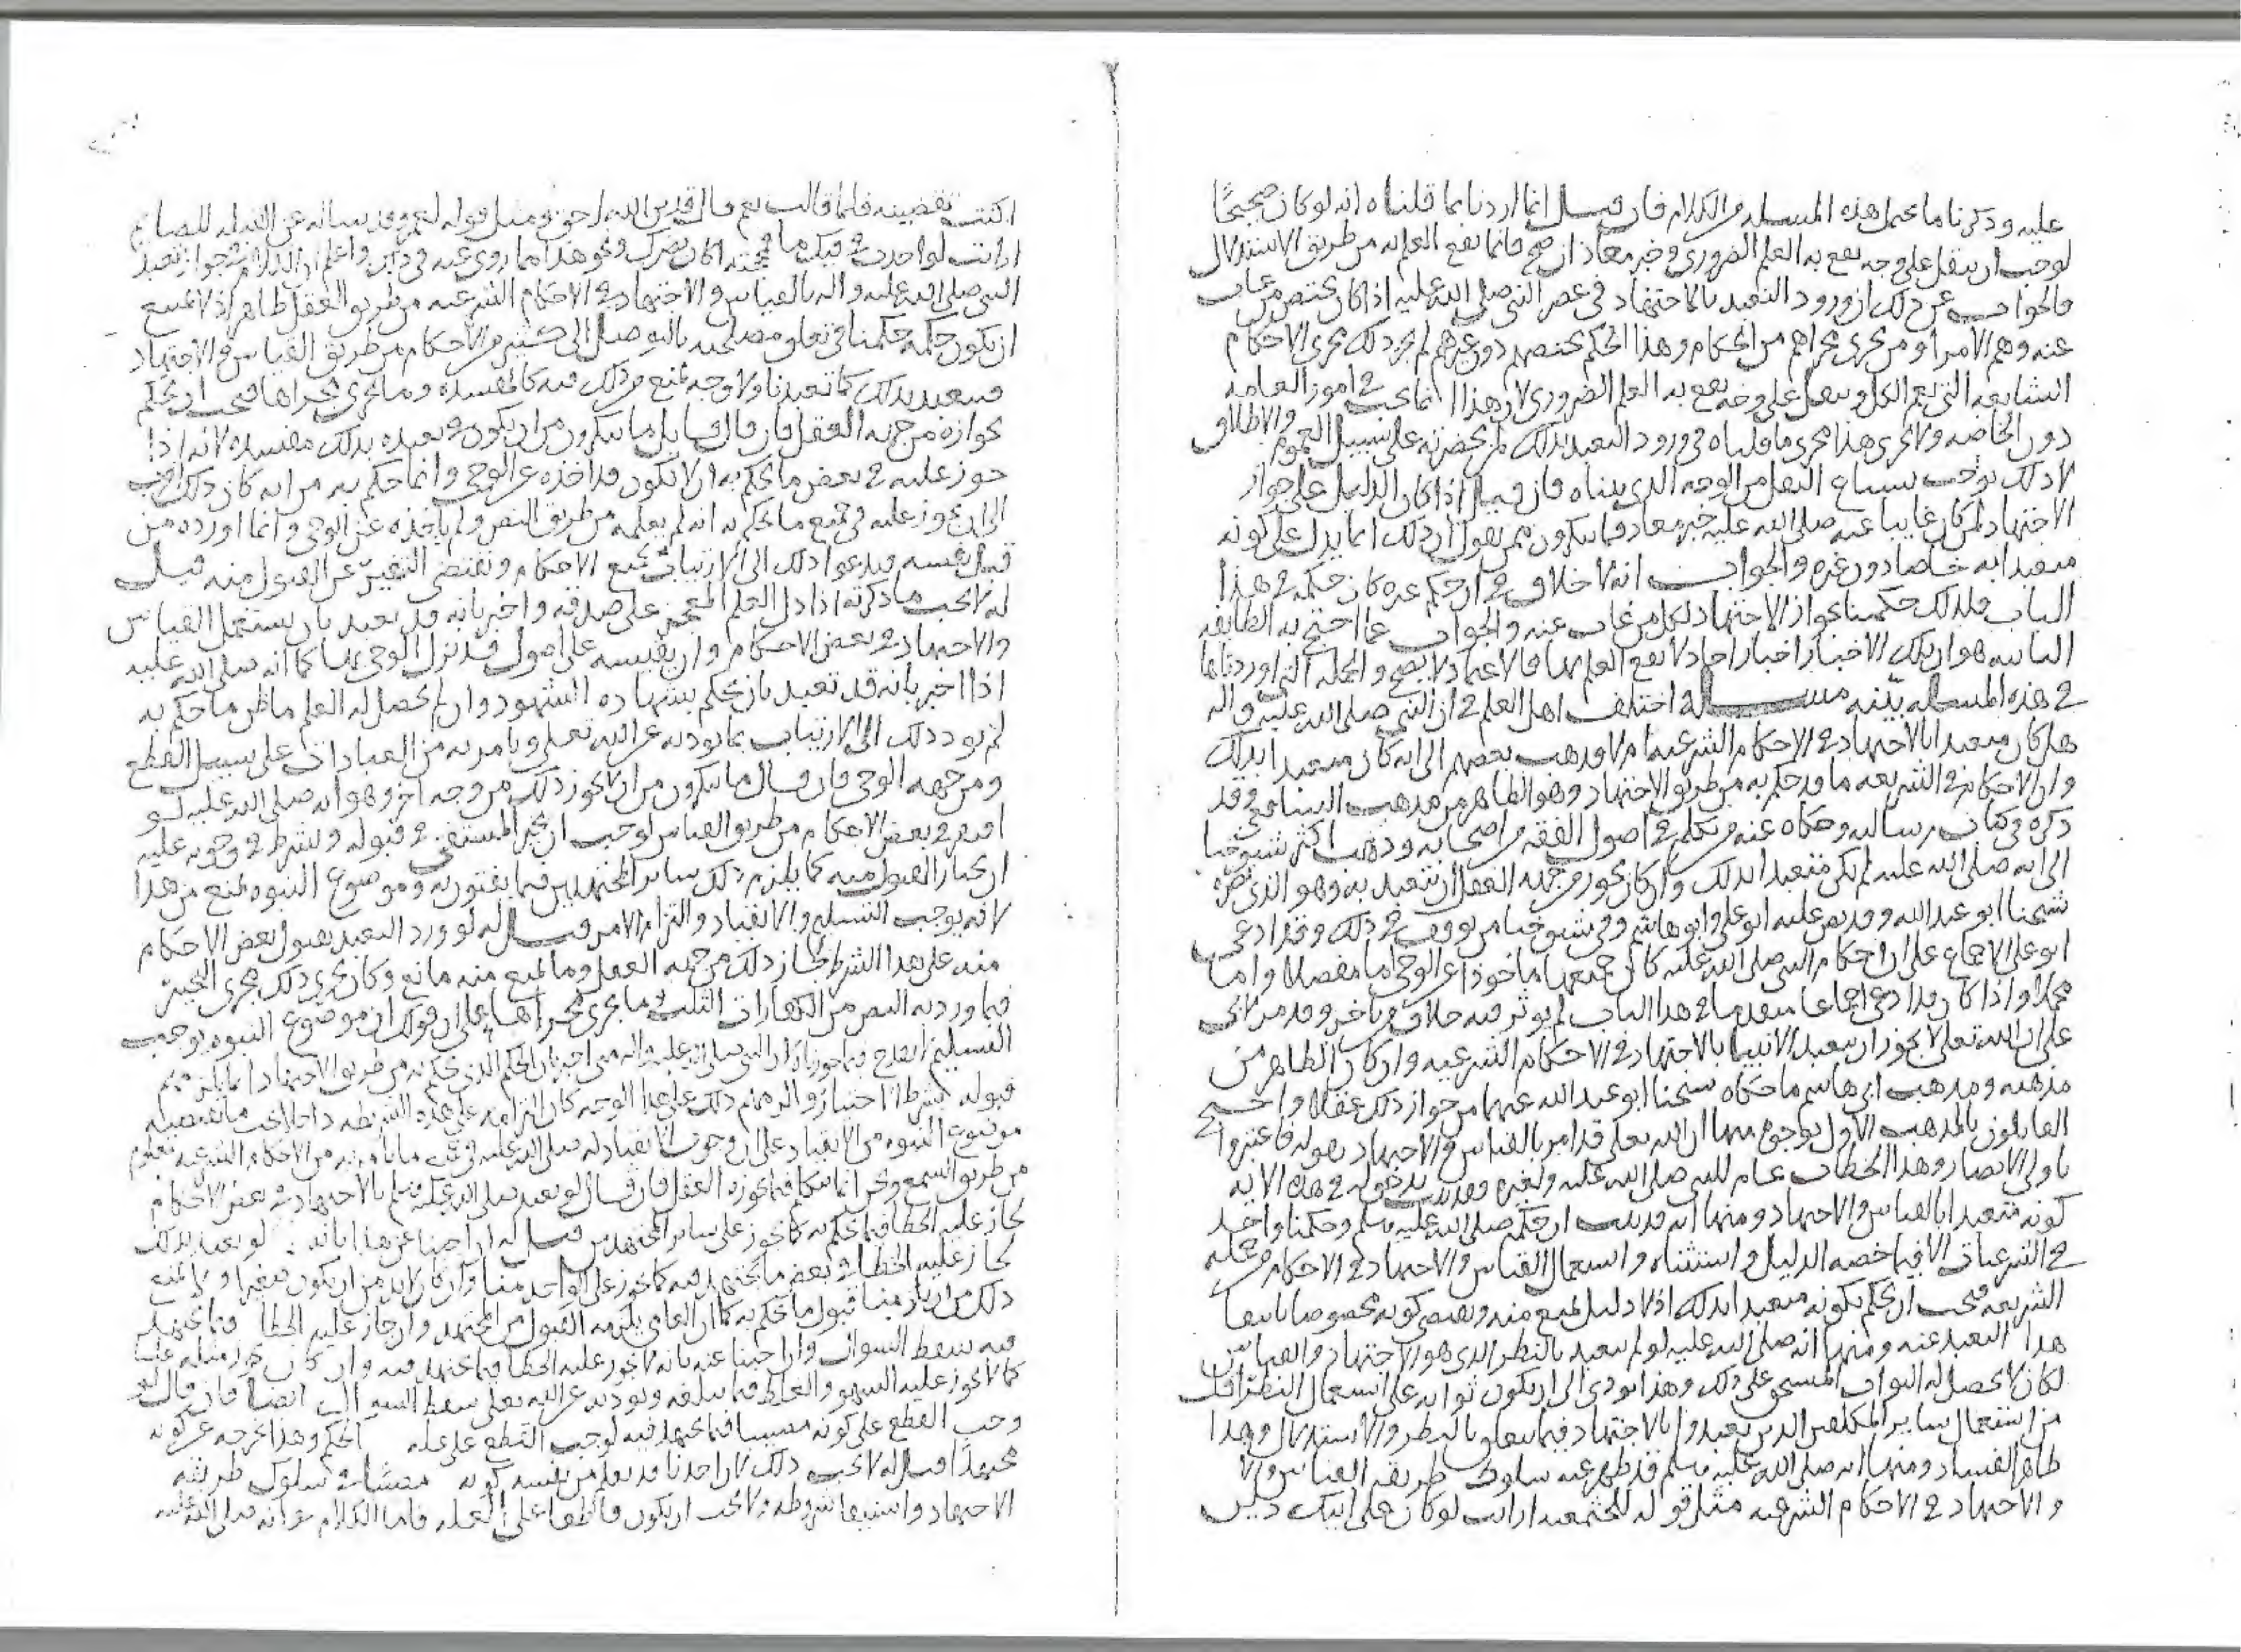 عليه وذكرنا ما يحتمل هذه المسله من الكلام فان قيل انما اردنا بما قلناه انه لو كان صحيحًا
لوجب ان ينقل على وجه يقع به العلم الضروري وخبر معاذ ان صح فانما يقع العلم به من طريق الاستدلال
فالجواب عن ذلك ان ورود التعبد بالاجتهاد في عصر النبي صلى الله عليه اذا كان يختص من غاب
عنه وهم الامرا ومن يجري مجراهم من الحكام وهذا الحكم يختصهم دون غيرهم لم يجر ذلك مجرى الاحكام
الشايعه التي تعم الكل وينقل على وجه يقع به العلم الضروري لان هذا انما يجب في امور العامه
دون الخاصه ولا يجري هذا مجرى ما قلناه في ورود التعبد بذلك لمن بحضرته على سبيل العموم والاطلاق
لان ذلك يوجب شياع النقل من الوجه الذي بيناه فان قيل اذا كان الدليل على جواز
الاجتهاد لمن كان غايبا عنه صلى الله عليه خبر معاذ فما تنكرون ممن يقول ان ذلك انما يدل على كونه
متعبدا به خاصا دون غيره والجواب انه لا خلاف في ان حكم غيره كان حكمه في هذا
الباب فلذلك حكمنا بجواز الاجتهاد لكل من غاب عنه والجواب عما احتج به الطايفه
الثانيه هو ان تلك الاخبار اخبار احاد لا يقع العلم بها فالاعتماد لا يصح والجمله التي اوردناها
في هذه المسله بيّنه مسله اختلف اهل العلم في ان النبي صلى الله عليه واله
هل كان متعبدا بالاجتهاد في الاحكام الشرعيه ام لا فذهب بعضهم الى انه كان متعبدا بذلك
وان الاحكام في الشريعه ما قد حكم به من طريق الاجتهاد وهو الظاهر من مذهب الشافعي وقد
ذكره في كتاب رسالته وحكاه عنه من تكلم في اصول الفقه من اصحابه وذهب اكثر شيوخنا
الى انه صلى الله عليه لم يكن متعبدا بذلك وان كان يجوز من جهه العقل ان يتعبد به وهو الذي نصره
شيخنا ابو عبد الله وقد نص عليه ابو علي وابو هاشم وفي شيوخنا من توقف في ذلك وقد ادعى
ابو علي الاجماع على ان احكام النبي صلى الله عليه كان جميعها ماخوذا عن الوحي اما مفصلا واما
مجملا واذا كان قد ادعى اجماعا متقدما في هذا الباب لم يوثر فيه خلاف من تاخر وقد مر لابي
علي ان الله تعالى لا يجوز ان يتعبد الانبيا بالاجتهاد في الاحكام الشرعيه وان كان الظاهر من
مذهبه ومذهب ابي هاشم ما حكاه شيخنا ابو عبد الله عنهما من جواز ذلك عقلا واحتج
القايلون بالمذهب الاول بوجوه منها ان الله تعالى قد امر بالقياس والاجتهاد بقوله فاعتبروا
ياولي الابصار وهذا الخطاب عام للنبي صلى الله عليه ولغيره وقد ثبت بدخوله في هذه الايه
كونه متعبدا بالقياس والاجتهاد ومنها انه قد ثبت ان حكمه صلى الله عليه وسلم وحكمنا واحد
في الشرعيات الا فيما خصه الدليل واستثناه واستعمال القياس والاجتهاد في الاحكام من جمله
الشريعه فيجب ان يحكم بكونه متعبدا بذلك اذ لا دليل يمنع منه ويقتضي كونه مخصوصا بانتفا
هذا التعبد عنه ومنها انه صلى الله عليه لو لم يتعبد بالنظر الذي هو الاجتهاد والقياس
لكان لا يحصل له الثواب المستحق على ذلك وهذا يودي الى ان يكون ثوابه على استعمال النظر اقل
من استعمال ساير المكلفين الذين تعبدوا بالاجتهاد فيما يتعلق بالنظر والاستدلال وهذا
ظاهر الفساد ومنها انه صلى الله عليه وسلم قد ظهر عنه سلوك طريقه القياس
والاجتهاد في الاحكام الشرعيه مثل قوله للخثعميه ارايت لو كان على ابيك دين
اكنت تقضينه فلما قالت نعم قال فدين الله احق ومثل قوله لعمر وقد ساله عن القبله للصايم
ارايت لو اخذت في فيك ما مججته اكان يضرك ونحو هذا مما روي عنه واعلم ان الكلام في جواز تعبد
النبي صلى الله عليه واله بالقياس والاجتهاد في الاحكام الشرعيه من طريق العقل ظاهر اذ لا يمتنع
ان يكون حكمه حكمنا في تعلق مصلحته بالتوصل الى كثير من الاحكام من طريق القياس والاجتهاد
فيتعبد بذلك كما تعبدنا ولا وجه يمنع من ذلك فيه كالمفسده وما يجري مجراها فيجب ان يحكم
بجوازه من جهه العقل فان قال قايل ما تنكرون من ان يكون في تعبده بذلك مفسده لانه اذا
جوز عليه في بعض ما يحكم به ان لا يكون قد اخذه عن الوحي وانما حكم به من رايه كان ذلك اقرب
الى ان يجوز عليه في جميع ما يحكم به انه لم يعلمه من طريق النص ولم ياخذه عن الوحي وانما اورده من
قبل نفسه فيدعوا ذلك الى الارتياب بجميع الاحكام ويقتضي التنفير عن القبول منه قيل
له لا يجب ما ذكرته اذا دل العلم المعجز على صدقه واخبر بانه قد تعبد بان يستعمل القياس
والاجتهاد في بعض الاحكام وان يقيسه على اصول قد نزل الوحي بها كما انه صلى الله عليه
اذا اخبر بانه قد تعبد بان يحكم بشهاده الشهود وان لم يحصل له العلم ما ظن ما حكم به
لم يود ذلك الى الارتياب بما يوديه عن الله تعالى ويامر به من العبادات على سبيل القطع
ومن جهه الوحي فان قال ما تنكرون من ان لا يجوز ذلك من وجه اخر وهو انه صلى الله عليه لو
افتى في بعض الاحكام من طريق القياس لوجب ان يخير المستفتي في قبوله ويشرط في وجوبه عليه
ان يختار القبول منه كما يلزم ذلك ساير المجتهدين فيما يفتون به وموضوع النبوه يمنع من هذا
لانه يوجب التسليم والانقياد والتزام الامر قيل له لو ورد التعبد بقبول بعض الاحكام
منه على هذا الشرط لجاز ذلك من جهه العقل وما يمنع منه مانع وكان يجري ذلك مجرى التخيير
فيما ورد به النص من الكفارات الثلث وما يجري مجراها على ان قولك ان موضوع النبوه يوجب
قبوله بشرط اختياره والزمهم ذلك على هذا الوجه كان التزامه على هذه الشريطه داخلا تحت ما يقتضيه
موضوع النبوه من الانقياد على ان وجوب الانقياد له صلى الله عليه في ما يامر به من الاحكام الشرعيه معلوم
من طريق السمع ونحن انما نتكلم فيما يجوزه العقل فان قال لو تعبد صلى الله عليه وسلم بالاجتهاد في بعض الاحكام
لجاز عليه الخطا فيما يحكم به كما يجوز على ساير المجتهدين قيل له ان اجبنا عن هذا بانه لو تعبد بذلك
لجاز عليه الخطا في بعض ما يجتهد فيه كما يجوز على الواحد منا وان كان لا بد من ان يكون صغيرا ولا يمنع
ذلك من ان يلزمنا قبول ما يحكم به كما ان العامي يلزمه القبول من المجتهد وان جاز عليه الخطا فيما يجتهد
فيه سقط السوال وان اجبنا عنه بانه لا يجوز عليه الخطا فيما يجتهد فيه وان كان يجوز مثله علينا
كما لا يجوز عليه السهو والغلط فيما يبلغه ويوديه عن الله تعالى سقط السوال ايضا فان قال لو
وجب القطع على كونه مصيبا فيما يجتهد فيه لوجب القطع على عله الحكم وهذا يخرجه عن كونه
مجتهدًا قيل له لا يجب ذلك لان احدنا قد يعلم من نفسه كونه مصيبا في سلوك طريقه
الاجتهاد واستيفا شروطه ولا يجب ان يكون قاطعا على العله فاما الكلام في انه صلى الله عليه